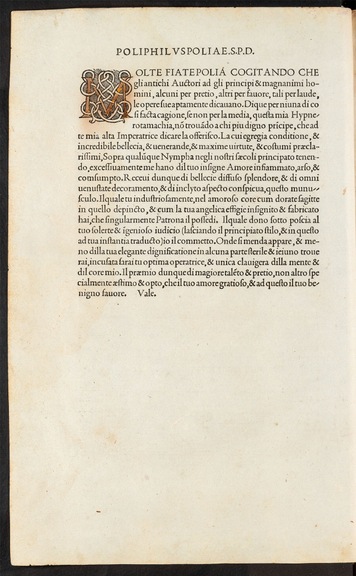 POLIPHILVS POLIAE. S. P. D.
MOLTE FIATE POLIA COGITANDO CHE
gli antichi Auctori ad gli principi & magnanimi ho-
mini, alcuni per pretio, altri per fauore, tali per laude,
le opere sue aptamente dicauano. Dique per niuna di co
si facta cagione, se non per la media, questa mia Hypne-
rotamachia, nō trouādo a chi piu digno prīcipe, che ad
te mia alta Imperatrice dicare la offerisco. La cui egregia conditione, &
incredibile bellecia, & uenerande, & maxime uirtute, & costumi præcla-
rissimi, Sopra qualūque Nympha negli nostri sæcoli principato tenen-
do, excessiuamente me hano dil tuo insigne Amore infiammato, arso, &
consumpto. Receui dunque di bellecie diffuso splendore, & di omni
uenustate decoramento, & di inclyto aspecto conspicua, questo munu-
sculo. Il quale tu industriosamente, nel amoroso core cum dorate sagitte
in quello depincto, & cum la tua angelica effigie insignito & fabricato
hai, che singularmente Patrona il possedi. Il quale dono sotto poscia al
tuo solerte & īgenioso iudicio (lasciando il principiato stilo, & in questo
ad tua instantia traducto) io il commetto. Onde si menda appare, & me-
no dilla tua elegante dignificatione in alcuna parte sterile & ieiuno troue
rai, incusata sarai tu optima operatrice, & unica clauigera dilla mente &
dil core mio. Il præmio dunque di magiore talēto & pretio, non altro spe
cialmente æstimo & opto, che il tuo amore gratioso, & ad questo il tuo be-
nigno fauore. Vale.